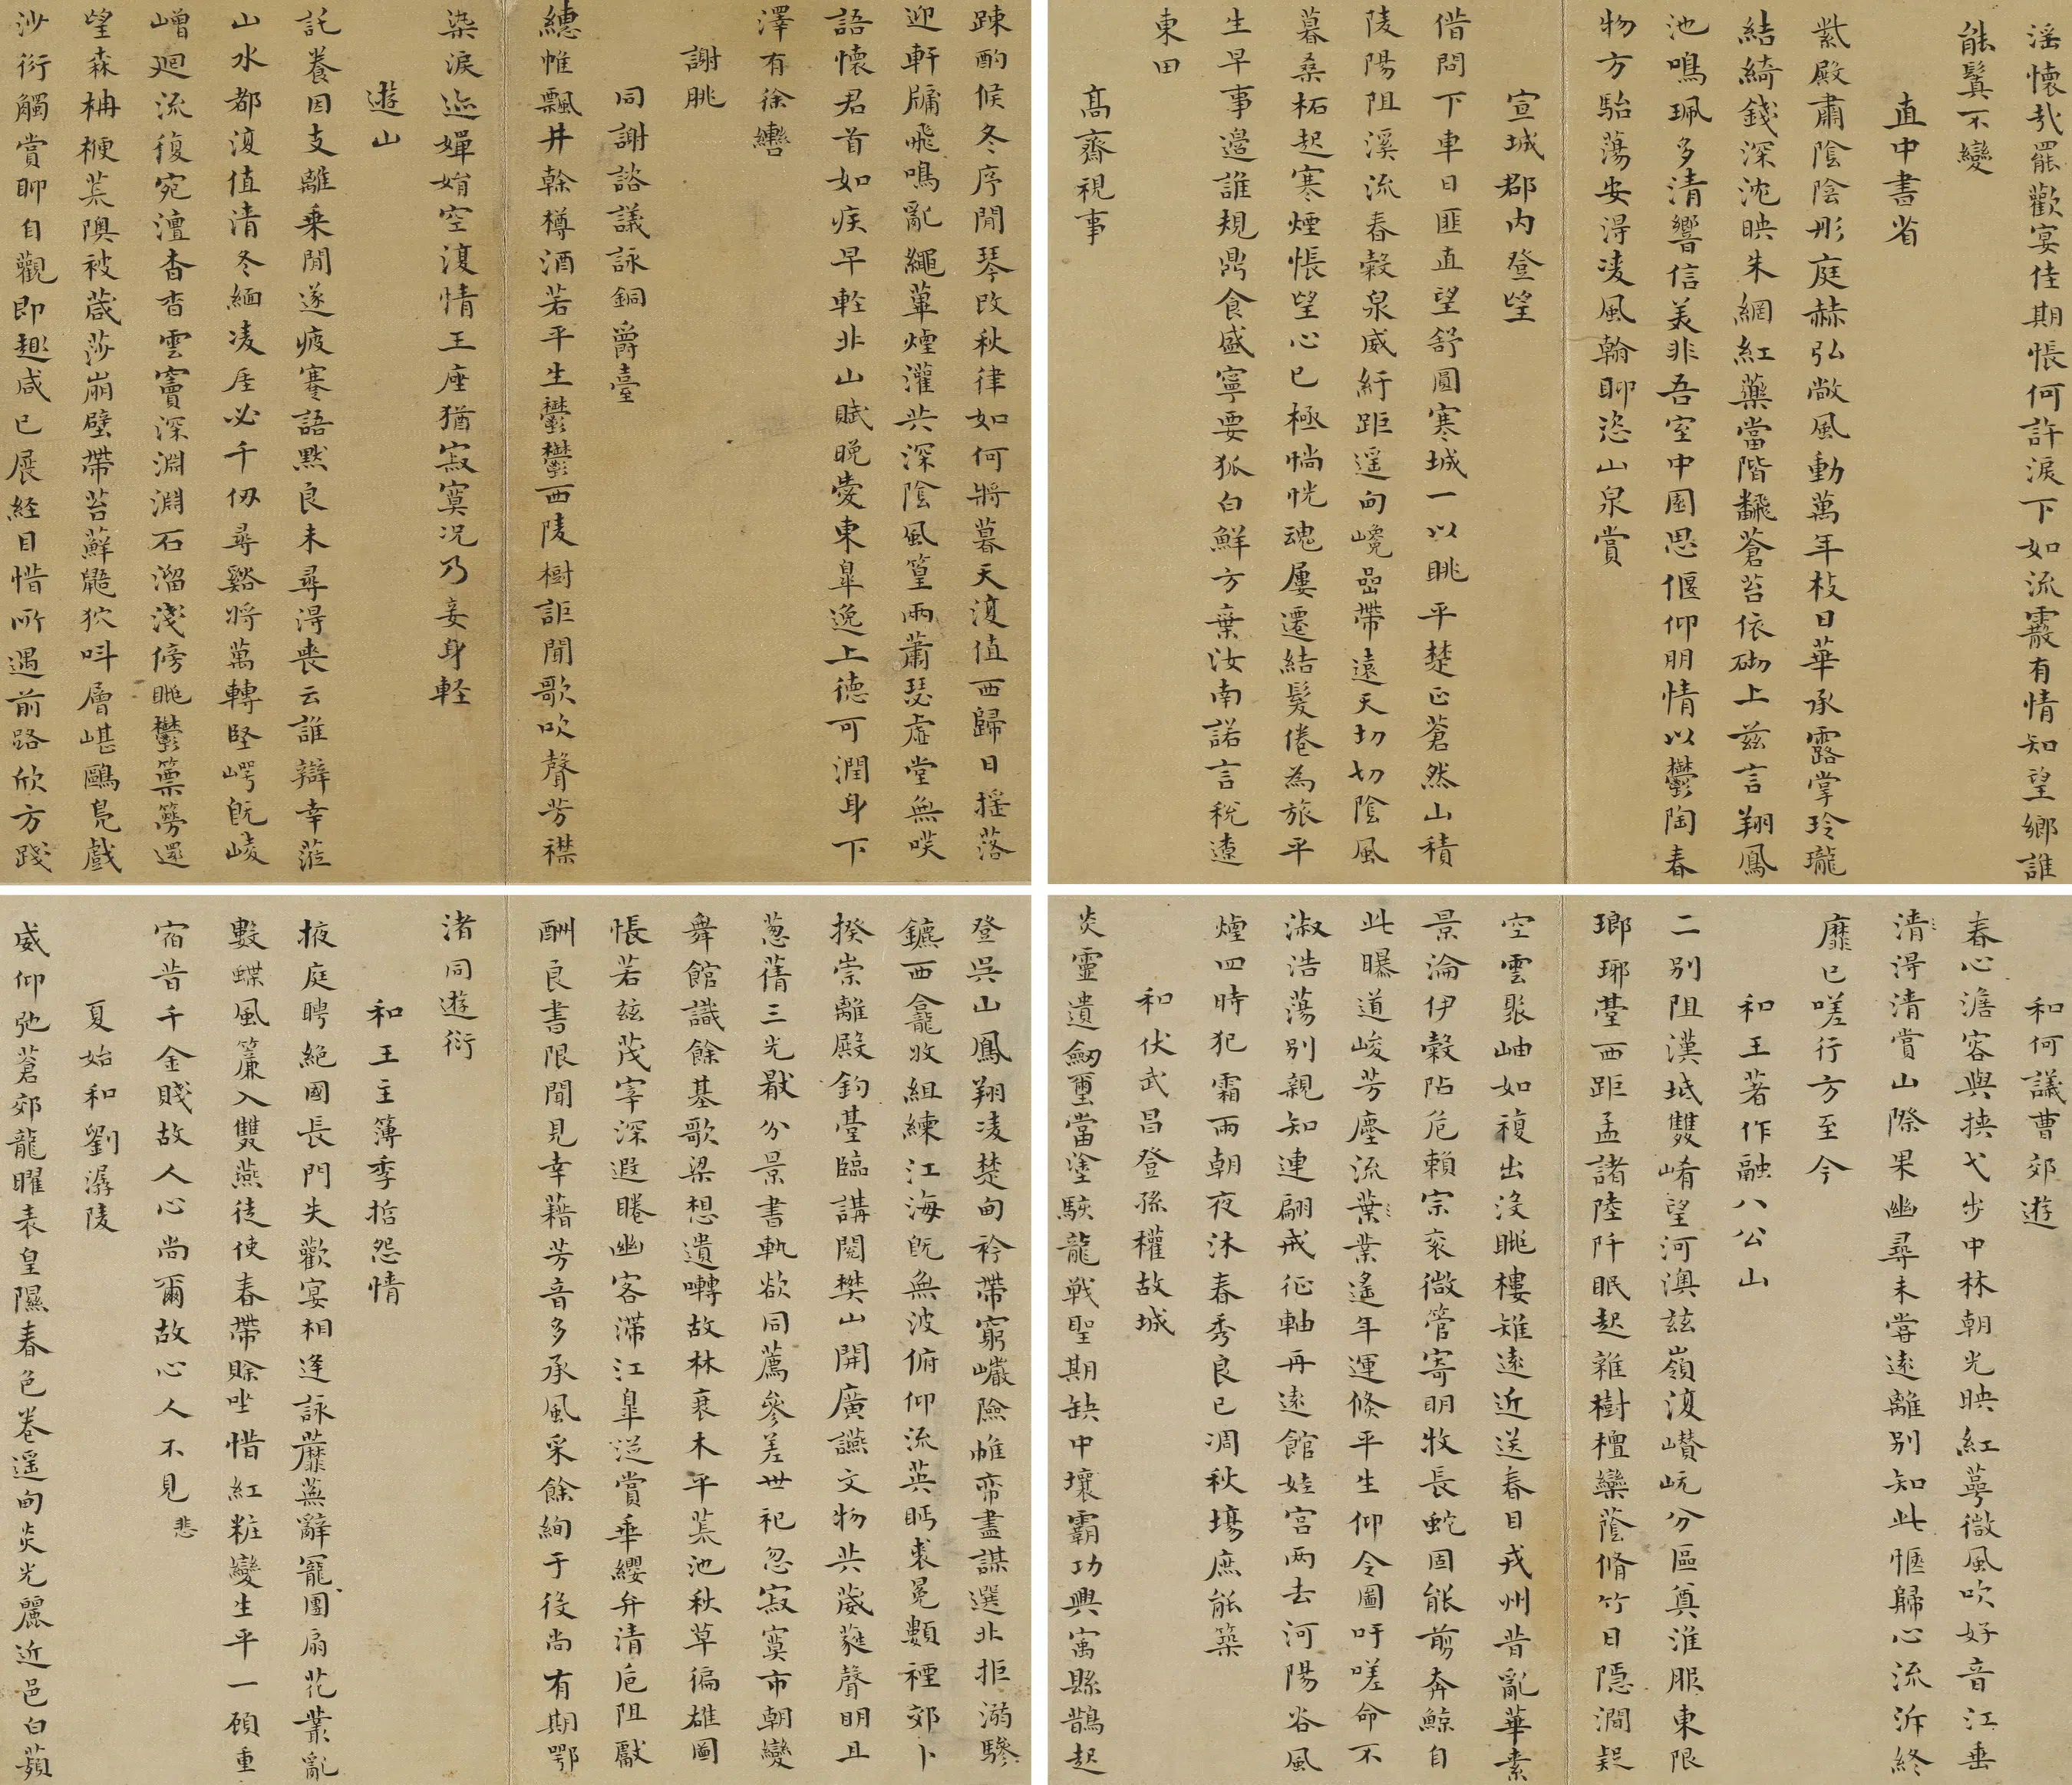 淫懷哉罷歡宴佳期悵何許淚下如流霰有情知望鄉誰
能鬒不變
直中書省
紫殿肅陰陰彤庭赫弘敞風動萬年枝日華承露掌玲瓏
結綺錢深沈映朱網紅藥當階飜蒼苔依砌上茲言翔鳳
池鳴珮多清響信美非吾室中園思偃仰朋情以鬱陶春
物方駘蕩安得凌風翰聊恣山泉賞
宣城郡内登望
借問下車日匪直望舒圓寒城一以眺平楚正蒼然山積
陵陽阻溪流春穀泉威紆距遥甸巉嵒帶遠天切切陰風
暮桑柘起寒煙悵望心已極惝怳魂屢遷結髮倦為旅平
生早事邉誰規鼎食盛寧要狐白鮮方棄汝南諾言稅遼
東田
高齋視事
踈酌候冬序閒琴改秋律如何將暮天復值西歸日摇落
迎軒牖飛鳴亂繩蓽煙灌共深陰風篁兩蕭瑟虛堂無咲
語懷君首如疾早輊北山賦晚愛東臯逸上德可潤身下
澤有徐轡
謝朓
同謝諮議詠銅爵臺
繐帷飄井幹樽酒若平生鬱鬱西陵樹詎聞歌吹聲芳襟
染淚迹嬋娟空復情玉座猶寂寞況乃妾身輕
遊山
託養因支離乗閒遂疲蹇語黙良未尋得喪云誰辯幸蒞
山水都復值清冬緬凌厓必千仞尋谿將萬轉堅崿旣崚
嶒迴流復宛澶杳杳雲竇深淵淵石溜淺傍眺鬱篻簩還
望森柟楩荒隩被葴莎崩壁帶苔蘚鼯狖叫層嵁鷗鳧戲
沙衍觸賞聊自觀即趣咸已展経目惜所遇前路欣方踐
和何議曹郊遊
春心澹容與挾弋步中林朝光映紅萼微風吹好音江垂
清得清賞山際果幽尋未嘗遠離別知此愜歸心流泝終
靡已嗟行方至今
和王著作融八公山
二別阻漢坻雙崤望河澳茲嶺復巑岏分區奠淮服東限
瑯琊臺西距孟諸陸阡眠起雜樹檀欒蔭脩竹日隱澗疑
空雲聚岫如複出沒眺樓雉遠近送春目戎州昔亂華素
景淪伊穀阽危賴宗衮微管寄明牧長蛇固能剪奔鯨自
此曝道峻芳塵流葉業遙年運倏平生仰令圖吁嗟命不
淑浩蕩別親知連翩戒征軸再遠館娃宮两去河陽谷風
煙四時犯霜雨朝夜沐春秀良已凋秋塲庶能築
和伏武昌登孫權故城
炎靈遺劒璽當塗駭龍戰聖期缺中壤霸功興寓縣鵲起
登吳山鳳翔凌楚甸衿帶窮巖險帷帟盡謀選北拒溺驂
鑣西龕收組練江海旣無波俯仰流英眄裘冕類禋郊卜
揆崇離殿釣臺臨講閱樊山開廣讌文物共葳蕤聲明且
蔥蒨三光厭分景書軌欲同薦參差世祀忽寂寞市朝變
舞館識餘基歌梁想遺囀故林衰木平荒池秋草徧雄圖
悵若茲茂宰深遐睠幽客滯江臯從賞乖纓弁清巵阻獻
酬良書限聞見幸藉芳音多承風采餘絢于役尚有期鄂
渚同遊衍
和王主簿季哲怨情
掖庭聘絕國長門失歡宴相逢詠蘼蕪辭寵團扇花叢亂
數蝶風簾入雙燕徒使春帶賒坐惜紅粧變生平一顧重
宿昔千金賤故人心尚爾故心人不見悲
夏始和劉潺陵
威仰弛蒼郊龍曜表皇隰春色卷遥甸炎光麗近邑白蘋